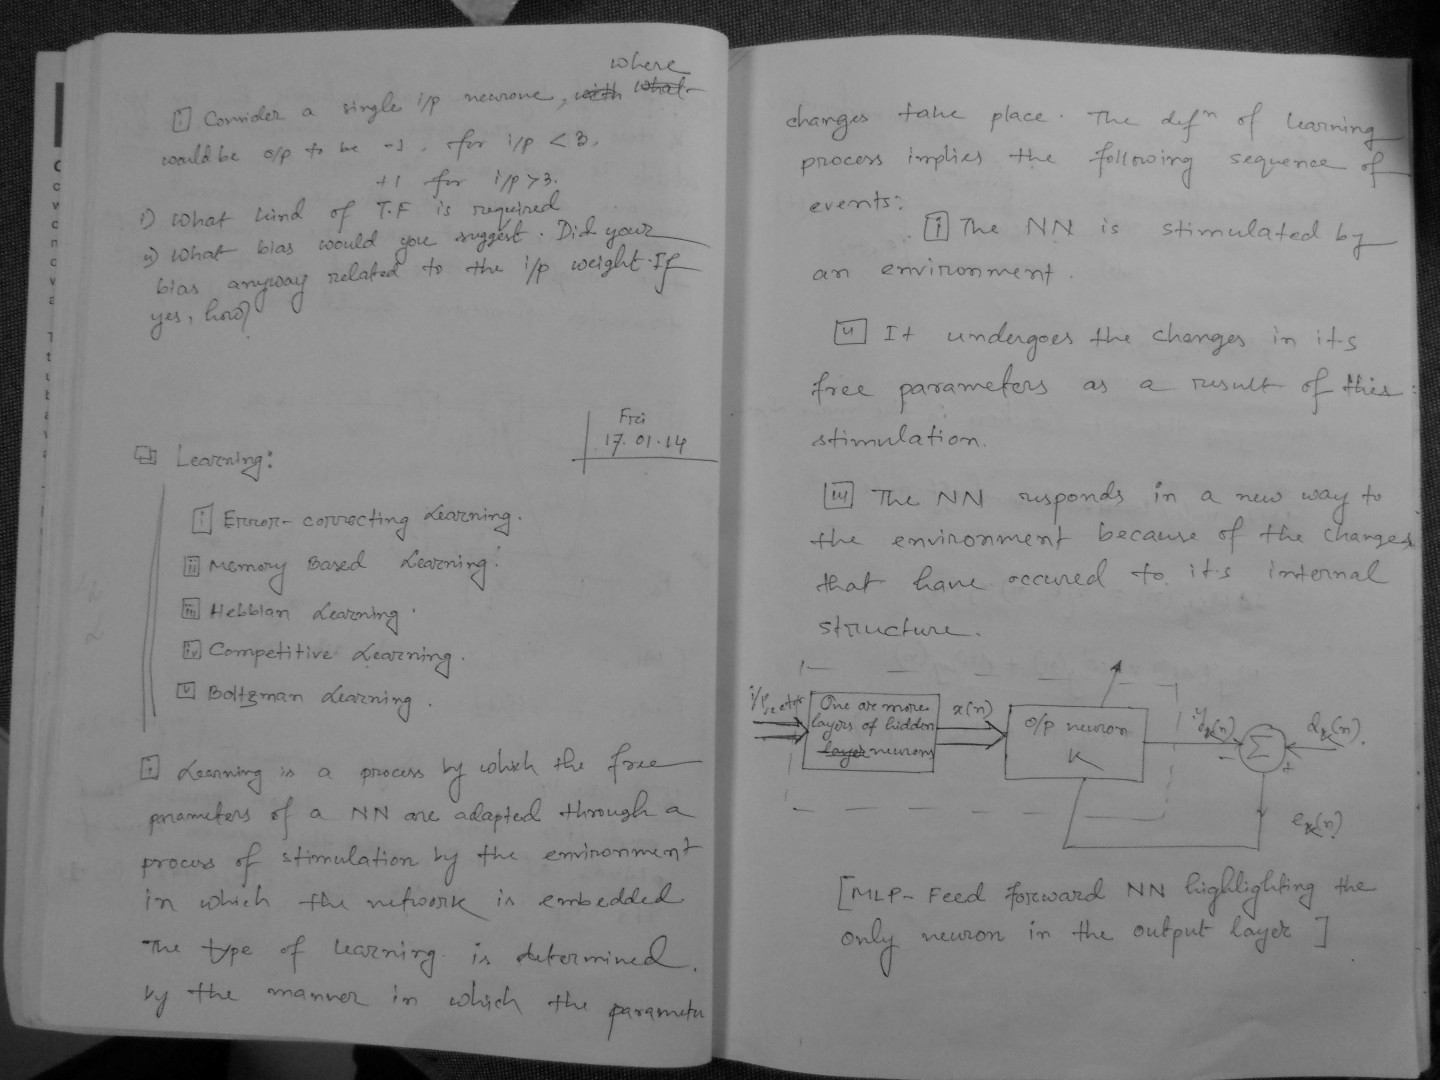 where
i Consider a single i/p neurone, with what
would be o/p to be -1, for i/p < 3.
+1 for i/p > 3.
i) What kind of T.F is required
ii) What bias would you suggest. Did your
bias anyway related to the i/p weight. If
yes, how?
Fri
17.01.14
Learning:
i Error-correcting Learning.
ii Memory Based Learning.
iii Hebbian Learning.
iv Competitive Learning.
v Boltzman Learning.
i Learning is a process by which the free
parameters of a NN are adapted through a
process of stimulation by the environment
in which the network is embedded.
The type of learning is determined
by the manner in which the parameter
changes take place. The defn of learning
process implies the following sequence of
events:
i The NN is stimulated by
an environment.
ii It undergoes the changes in its
free parameters as a result of this
stimulation.
iii The NN responds in a new way to
the environment because of the changes
that have occured to its internal
structure.
i/p vector
One are more
layers of hidden
layer neurons
x(n)
o/p neuron
K
yk(n)
Σ
-
+
dk(n).
ek(n)
[MLP- Feed forward NN highlighting the
only neuron in the output layer]